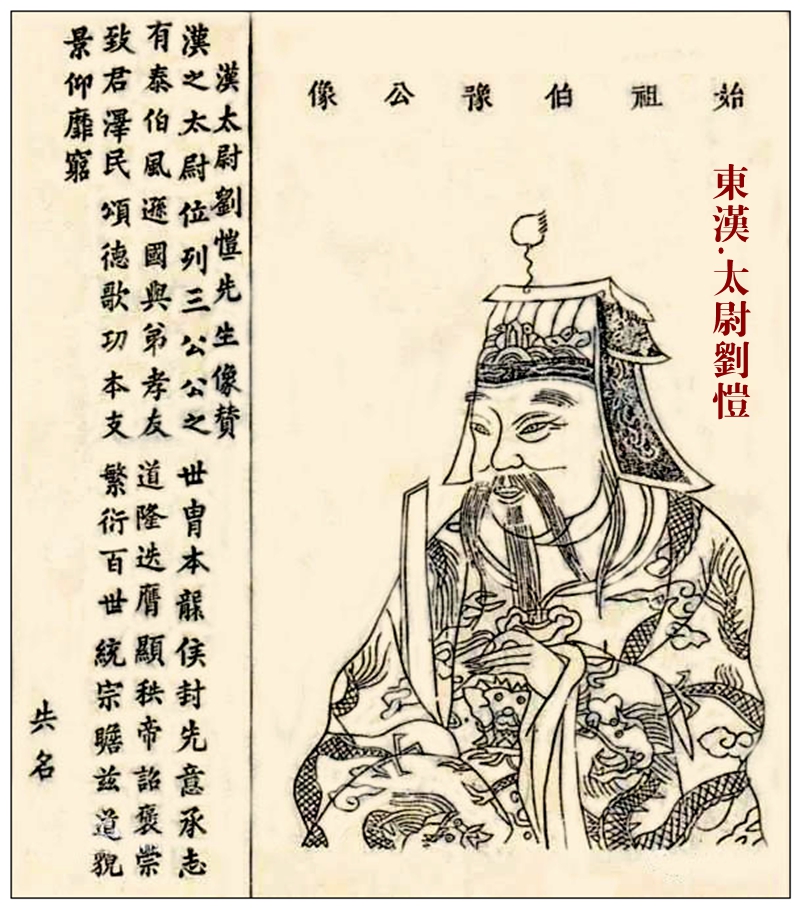 始祖伯豫公像
東漢·太尉劉愷
漢太尉劉愷先生像賛
漢之太尉位列三公公之世胄本侯封先意承志
有泰伯風遜國與弟孝友道隆迭膺顯秩帝詔褒崇
致君澤民頌德歌功本支繁衍百世統宗瞻茲道貌
景仰靡窮
失名